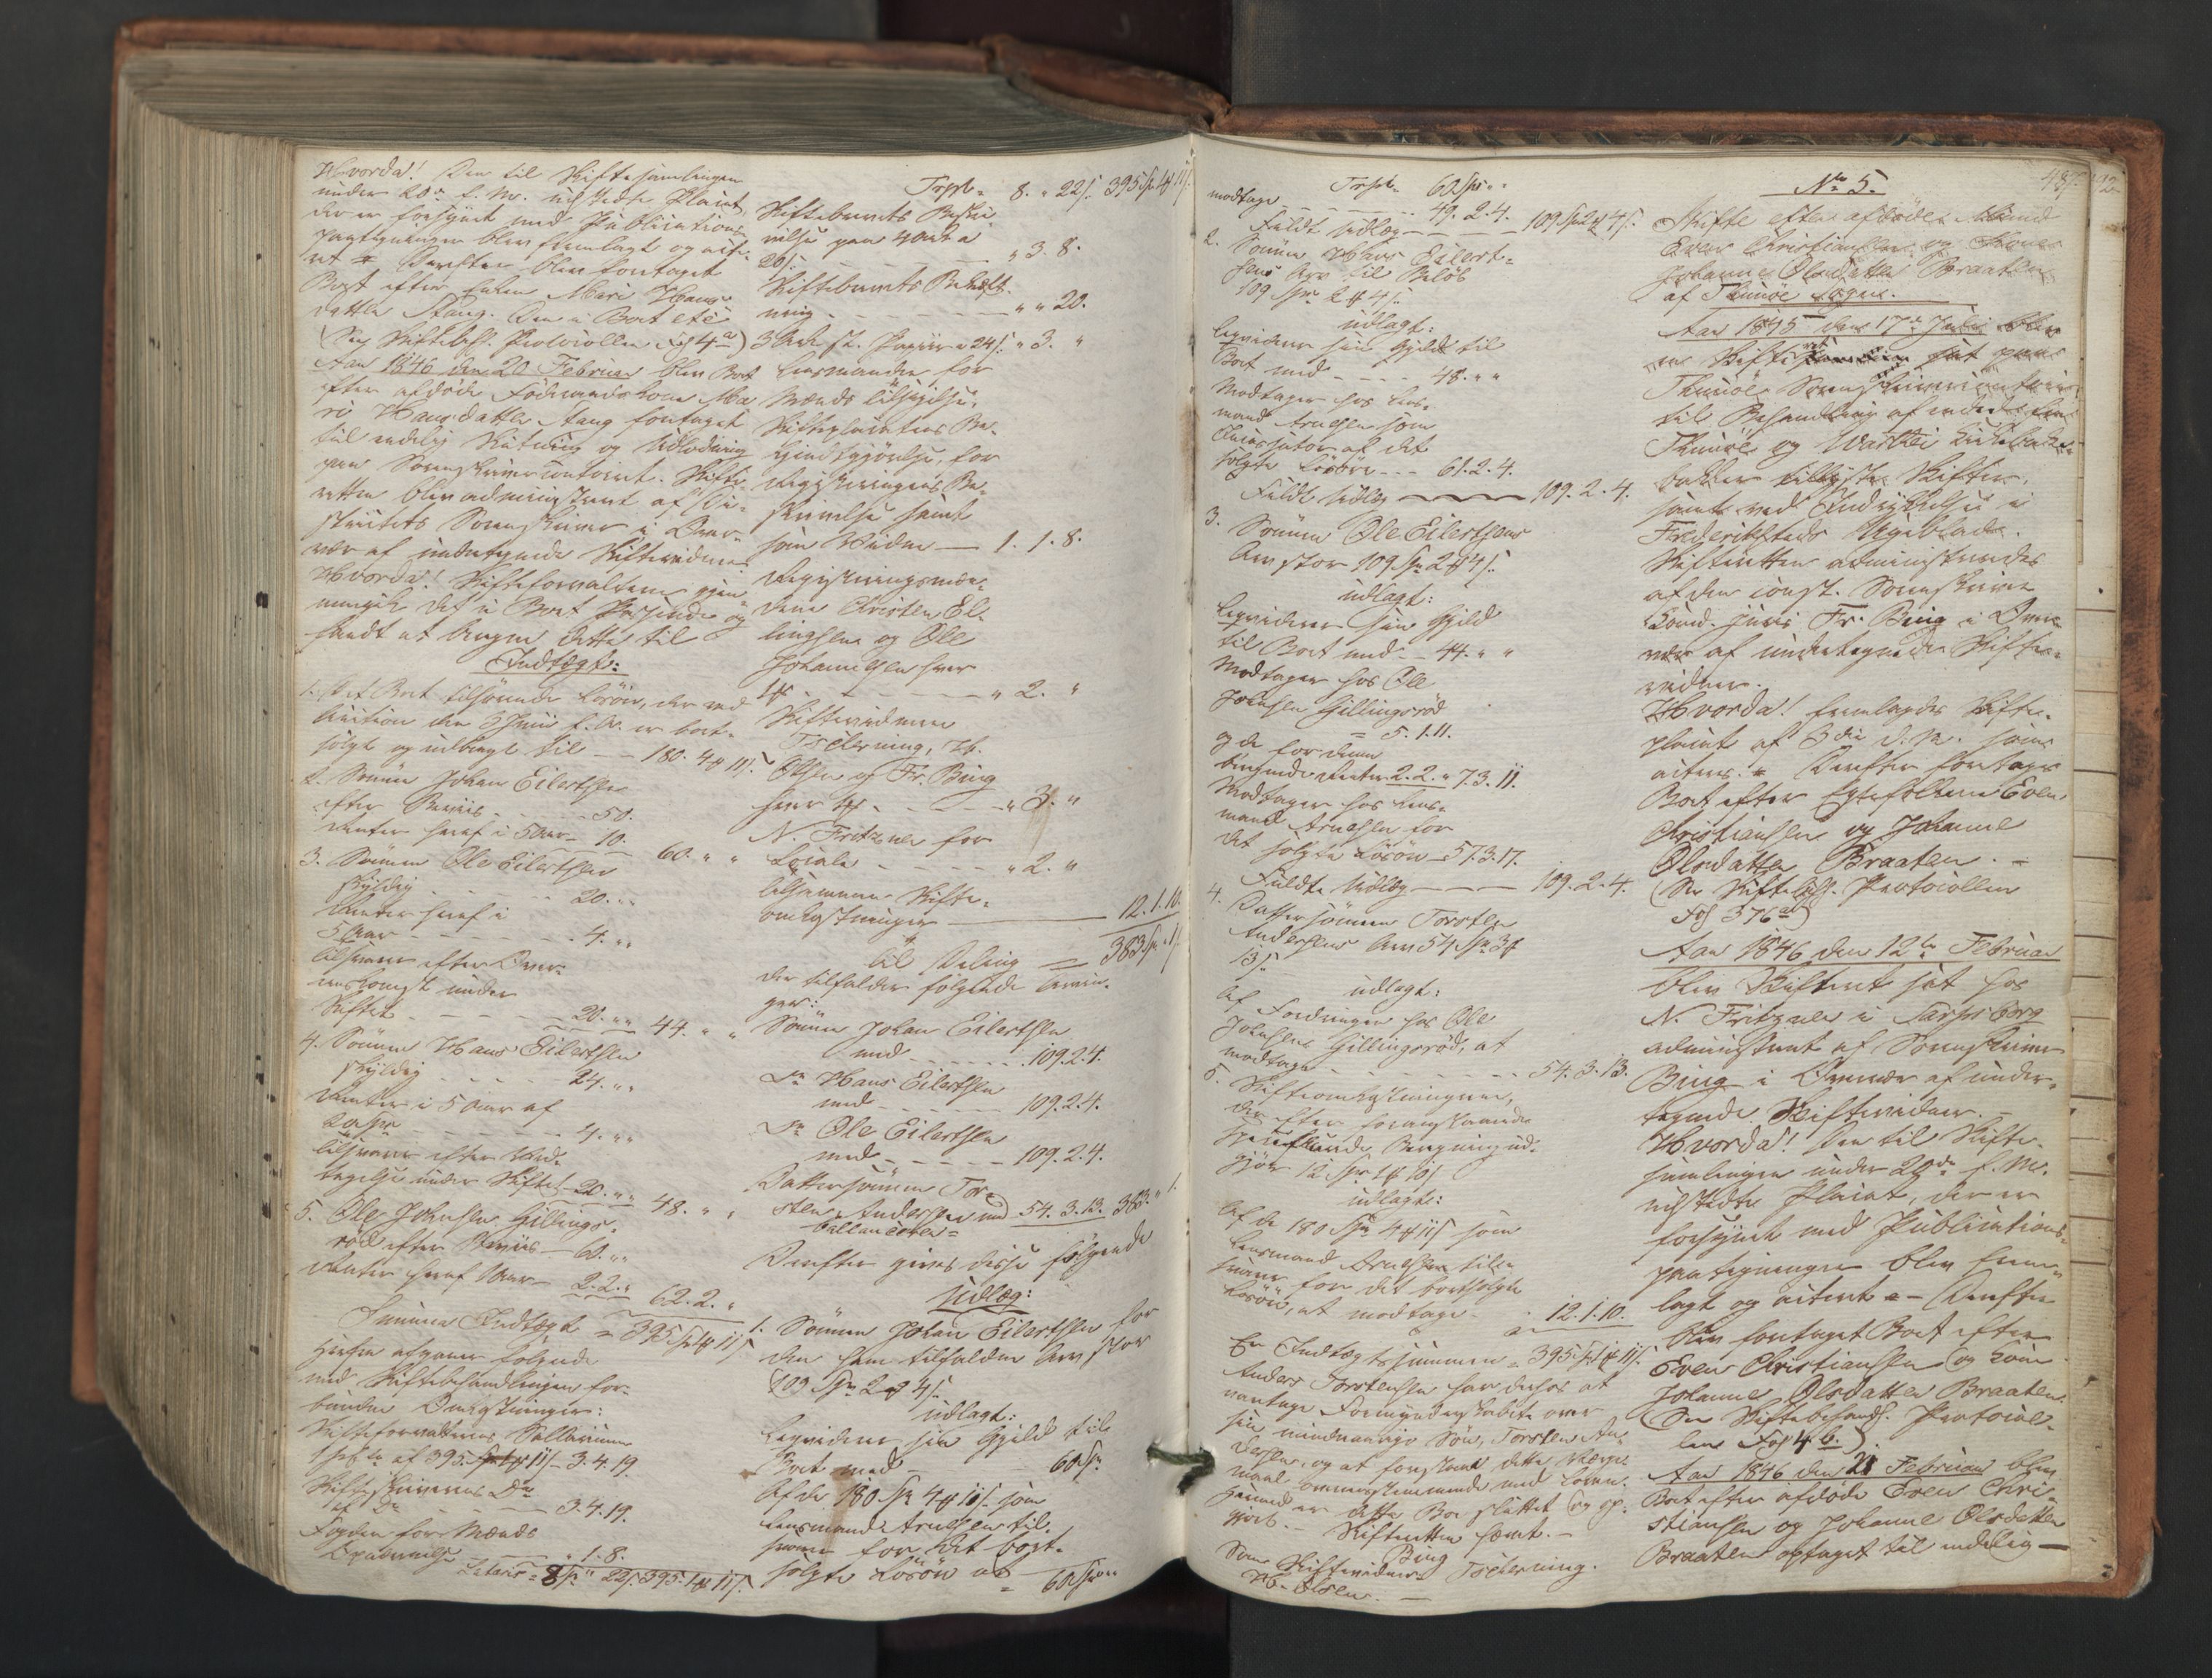 Hvorda! Den til Skiftesamlingen
under 20de f. M. udstedte Placat,
der er forsynet med Publications
paategninger blev fremlagt og acte-
ret Derefter blev foretaget
Boet efter Enken Mari Hans
datter Stang. Den i Boet etc
(See Skiftebeh. Protocollen fol 4a)
Aar 1846 den 20 Februar blev Boet
efter afdøde Fødemandskone Ma
ri Hansdatter Stang foretaget
til endelig Slutning og Udlodning
paa Sorenskrivercontoiret. Skifte-
retten blev administreret af Di-
strictets Sorenskriver i Over-
vær af undertegnede Skiftevidner
Hvorda! Skifteforvalteren gjen-
nemgik det i Boet Passerede og
fandt at Angive dette til
Indtægt:
1. Det Boet tilhørende Løsøre, der ved
Auction den 3 Juni f. A. er bort-
solgt og udbragt til - - 180. 4 # 11 s.
2. Sønnen Johan Eilertsen
efter Beviis - - - 50.
Renter heraf i 5 Aar - 10.
60. " "
3. Sønnen Ole Eilertsen
skyldig - - - 20. " "
Renter heraf i
5 Aar - - - - - 4. " "
tilsvarer efter Over-
enskomst under
Skiftet - - - - 20. " " 44. " "
4. Sønnen Hans Eilertsen
skyldig - - - 24. " "
Renter i 5 Aar af
20 Spd - - - - 4. " "
tilsvarer efter Ved-
tagelse under Skiftet 20. " " 48. " "
5. Ole Johnsen Gillings-
rød efter Beviis - 60. " "
Renter heraf 1 Aar - 2.2. " 62.2. "
Summa Indtægt = 395 Sp 1 # 11 s
Herfra afgaaer følgende
med Skiftebehandlingen for-
bundne Omkostninger:
Skifteforvalterens Sallarium
1 pCto af 395 Sp 1 # 11 s - 3.4.19.
Skifteskriverens Do
af Do - - - 3.4.19.
Fogden for Mænds
Opnævnelse - - " 1.8.
Lateris = 8 Sp " 22 s. 395. 1 # 11 s.
Trspt = 8. " 22 s. 395 Sp 1 # 11 s.
Skiftebrevets Beskri
velse paa 4 Ark a
26 s. - - - - - " 3. 8.
Skiftebrevets Bekræft
ning - - - - - " " 20.
3 Ark st. Papiir a 24 s. " 3. "
Lensmanden for
Mænds Tilsigelse,
Skifteplacatens Be-
kjendtgjørelse, for
Registreringens Be-
skrivelse samt
som Vidne — 1. 1. 8.
Registreringsmæn-
dene Christen El-
lingsen og Ole
Johannesen hver
1 # - - - - - " 2. "
Skiftevidnerne
Tscherning, H.
Olsen og Fr. Bing
hver 1 # - - - - " 3. "
N. Fritzner for
Locale - - - - - " 2. "
tilsammen Skifte-
omkostninger — 12.1.10.
til Deling = 383 Sp " 1 s
der tilfalder følgende Arvin-
ger:
Sønnen Johan Eilertsen
med - - - - - - 109.2.4.
Do Hans Eilertsen
med - - - - - - 109.2.4.
Do Ole Eilertsen
med - - - - - 109.2.4.
Dattersønnen Tor-
sten Andersen med 54.3.13. 383. " 1.
ballancerer =
Derefter gives disse følgende
Udlæg:
1. Sønnen Johan Eilertsen for
den ham tilfaldne Arv stor
109 Spd 2 # 4 s.
udlagt:
Liqviderer sin Gjeld til
Boet med - 60 Spd
Af de 180 Spd 4 # 11 s. som
Lensmand Arnesen til-
svarer for det bort-
solgte Løsøre at
= 60 Spd " "
Trspt. 60 Spd " "
modtage - - - - - 49. 2. 4.
Fuldt Udlæg - - - 109 Spd 2 # 4 s.
2. Sønnen Hans Eilert-
sens Arv til Beløb
109 Spd 2 # 4 s.
udlagt:
Liqviderer sin Gjeld til
Boet med - - - - 48. " "
Modtager hos Lens-
mand Arnesen som
Incassator af det
solgte Løsøre - - - 61.2.4.
Fuldt Udlæg — 109. 2. 4.
3. Sønnen Ole Eilertsens
Arv stor 109 Spd 2 # 4 s.
udlagt:
Liqviderer sin Gjeld
til Boet med - - 44. " "
Modtager hos Ole
Johnsen Gillingsrød
= 5. 1. 11.
og de for denne
beregnede Renter 2.2. " 7. 3. 11.
Modtager hos Lens-
mand Arnesen for
det solgte Løsøre - 57.3.17.
Fuldt Udlæg — 109. 2. 4.
4. Dattersønnen Torsten
Andersens Arv 54 Spd 3 #
13 s
udlagt:
Af Fordringen hos Ole
Johnsen Gillingsrød, at
modtage - - - - - 54. 3. 13.
5. Skifteomkostningerne,
der efter foranstaaende
specificerede Beregning ud-
gjør 12 Spd 1 # 10 s
udlagte:
Af de 180 Spd 4 # 11 s som
Lensmand Arnesen tils-
varer for det bortsolgte
Løsøre, at modtage - 12.1.10.
Er Indtægtssummen = 395 Sp 1 # 11 s.
Anders Torstensen har derhos at
varetage Formynderskabet over
sin mindreaarige Søn, Torsten An-
dersen, og at forestaae dette Værge
maal overensstemmende med Loven.
Hermed er dette Bo sluttet og op-
gjort. - Skifteretten hævet. -
Bing
Som Skiftevidner Tscherning.
H. Olsen. —
No 5.
Skifte efter afdøde Mand
Even Christiansen og Kone
Johanne Olsdatter Braaten
af Thunøe Sogn.
Aar 1845 den 17de Juli blev
en Skifteret sat paa
Thunøe Sorenskrivercontoir
til Behandling af endeel fra
Thunøe og Varteig Kirkebak-
bakker tillyste Skifter,
samt ved Indrykkelse i
Frederikstads Ugeblade.
Skifteretten administreredes
af den const. Sorenskriver
Cand. juris Fr. Bing i Over-
vær af undertegnede Skifte-
vidner.
Hvorda! fremlagdes Skifte-
placat af 3die d. M. som
acteres. Derefter foretages
Boet efter Egtefolkene Even
Christiansen og Johanne
Olsdatter Braaten. -
(See Skiftebeh. Protocollen
Fol 376 ab)
Aar 1846 den 12te Februar
blev Skifteret sat hos
N. Fritzner i Sarpsborg
administreret af Sorenskriver
Bing i Overvær af under-
tegnede Skiftevidner. -
Hvorda! Den til Skifte-
samlingen under 20de f. M.
udstedte Placat, der er
forsynet med Publications-
paategninger blev frem-
lagt og acteret - Derefter
blev foretaget Boet efter
Even Christiansen og Kone
Johanne Olsdatter Braaten.
(See Skiftebehandl. Protocol-
len Fol 4 b.)
Aar 1846 den 21 Februar blev
Boet efter afdøde Even Chri-
stiansen og Johanne Olsdatter
Braaten optaget til endelig —